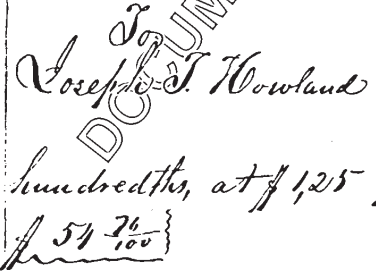 To
Joseph T. Howland
hundredths, at $1,25
$ 54 76/100
DOCUM